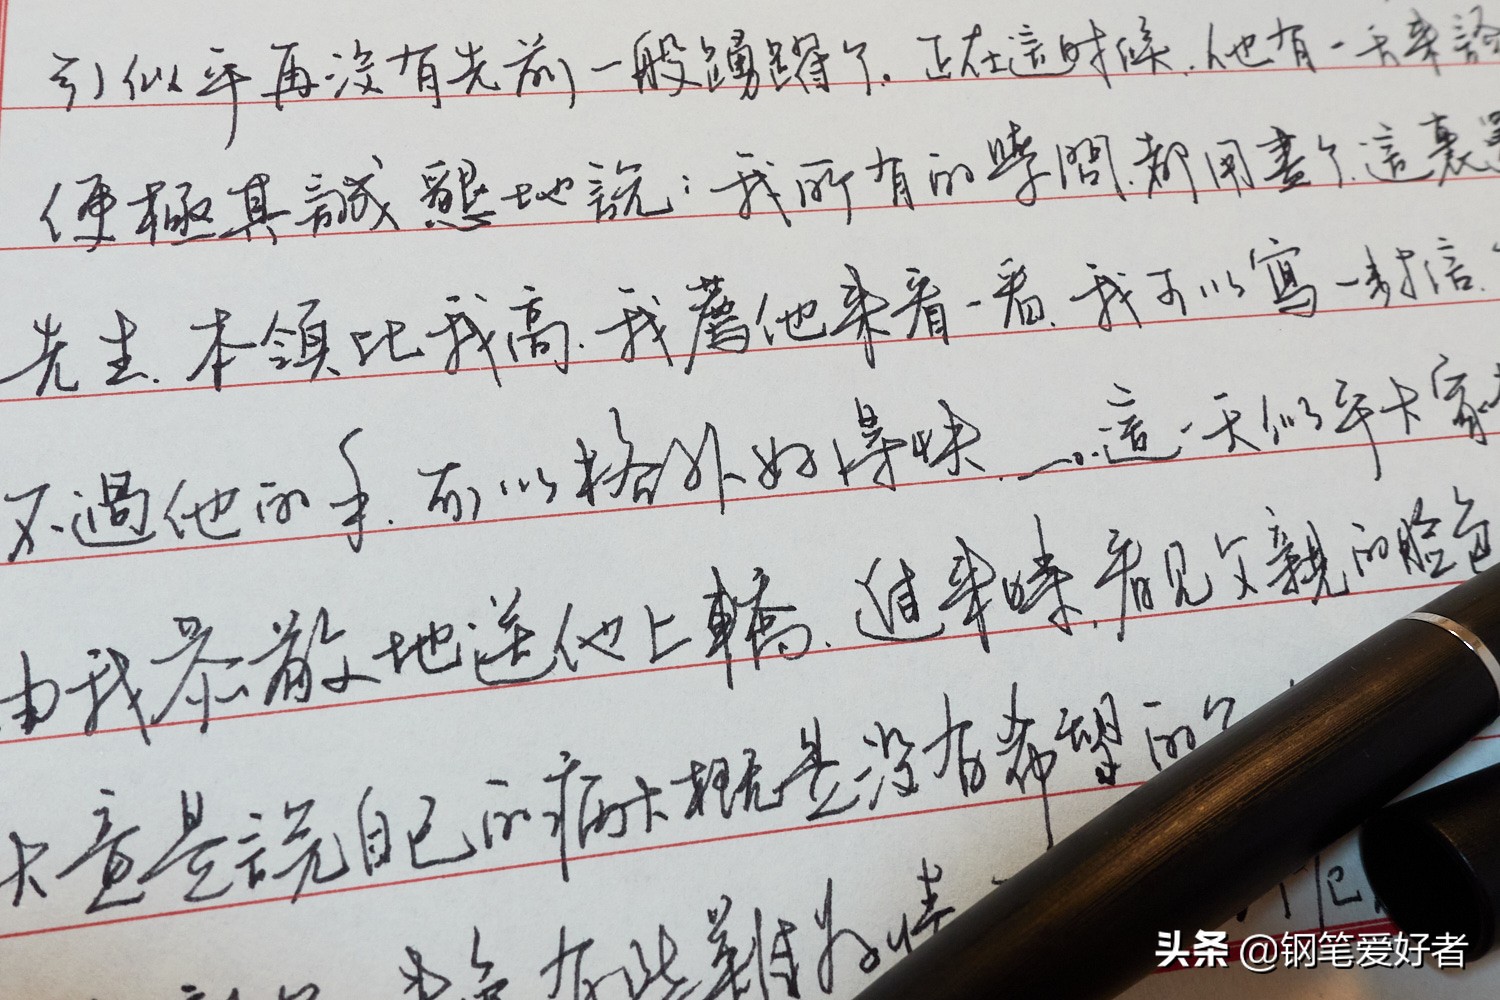 引似乎再没有先前一般踴躍了。正在這时候，他有一天来診
便極其誠懇地説：我所有的學問，都用盡了，這裏還
先生，本領比我高，我薦他来看一看，我可以寫一封信。
不過他的手，所以格外好得快……這一天似乎大家
由我恭敬地送他上轎，進来時，看見父親的脸色
大意是説自己的病大概是没有希望的了
有些難為情
头条 @钢笔爱好者